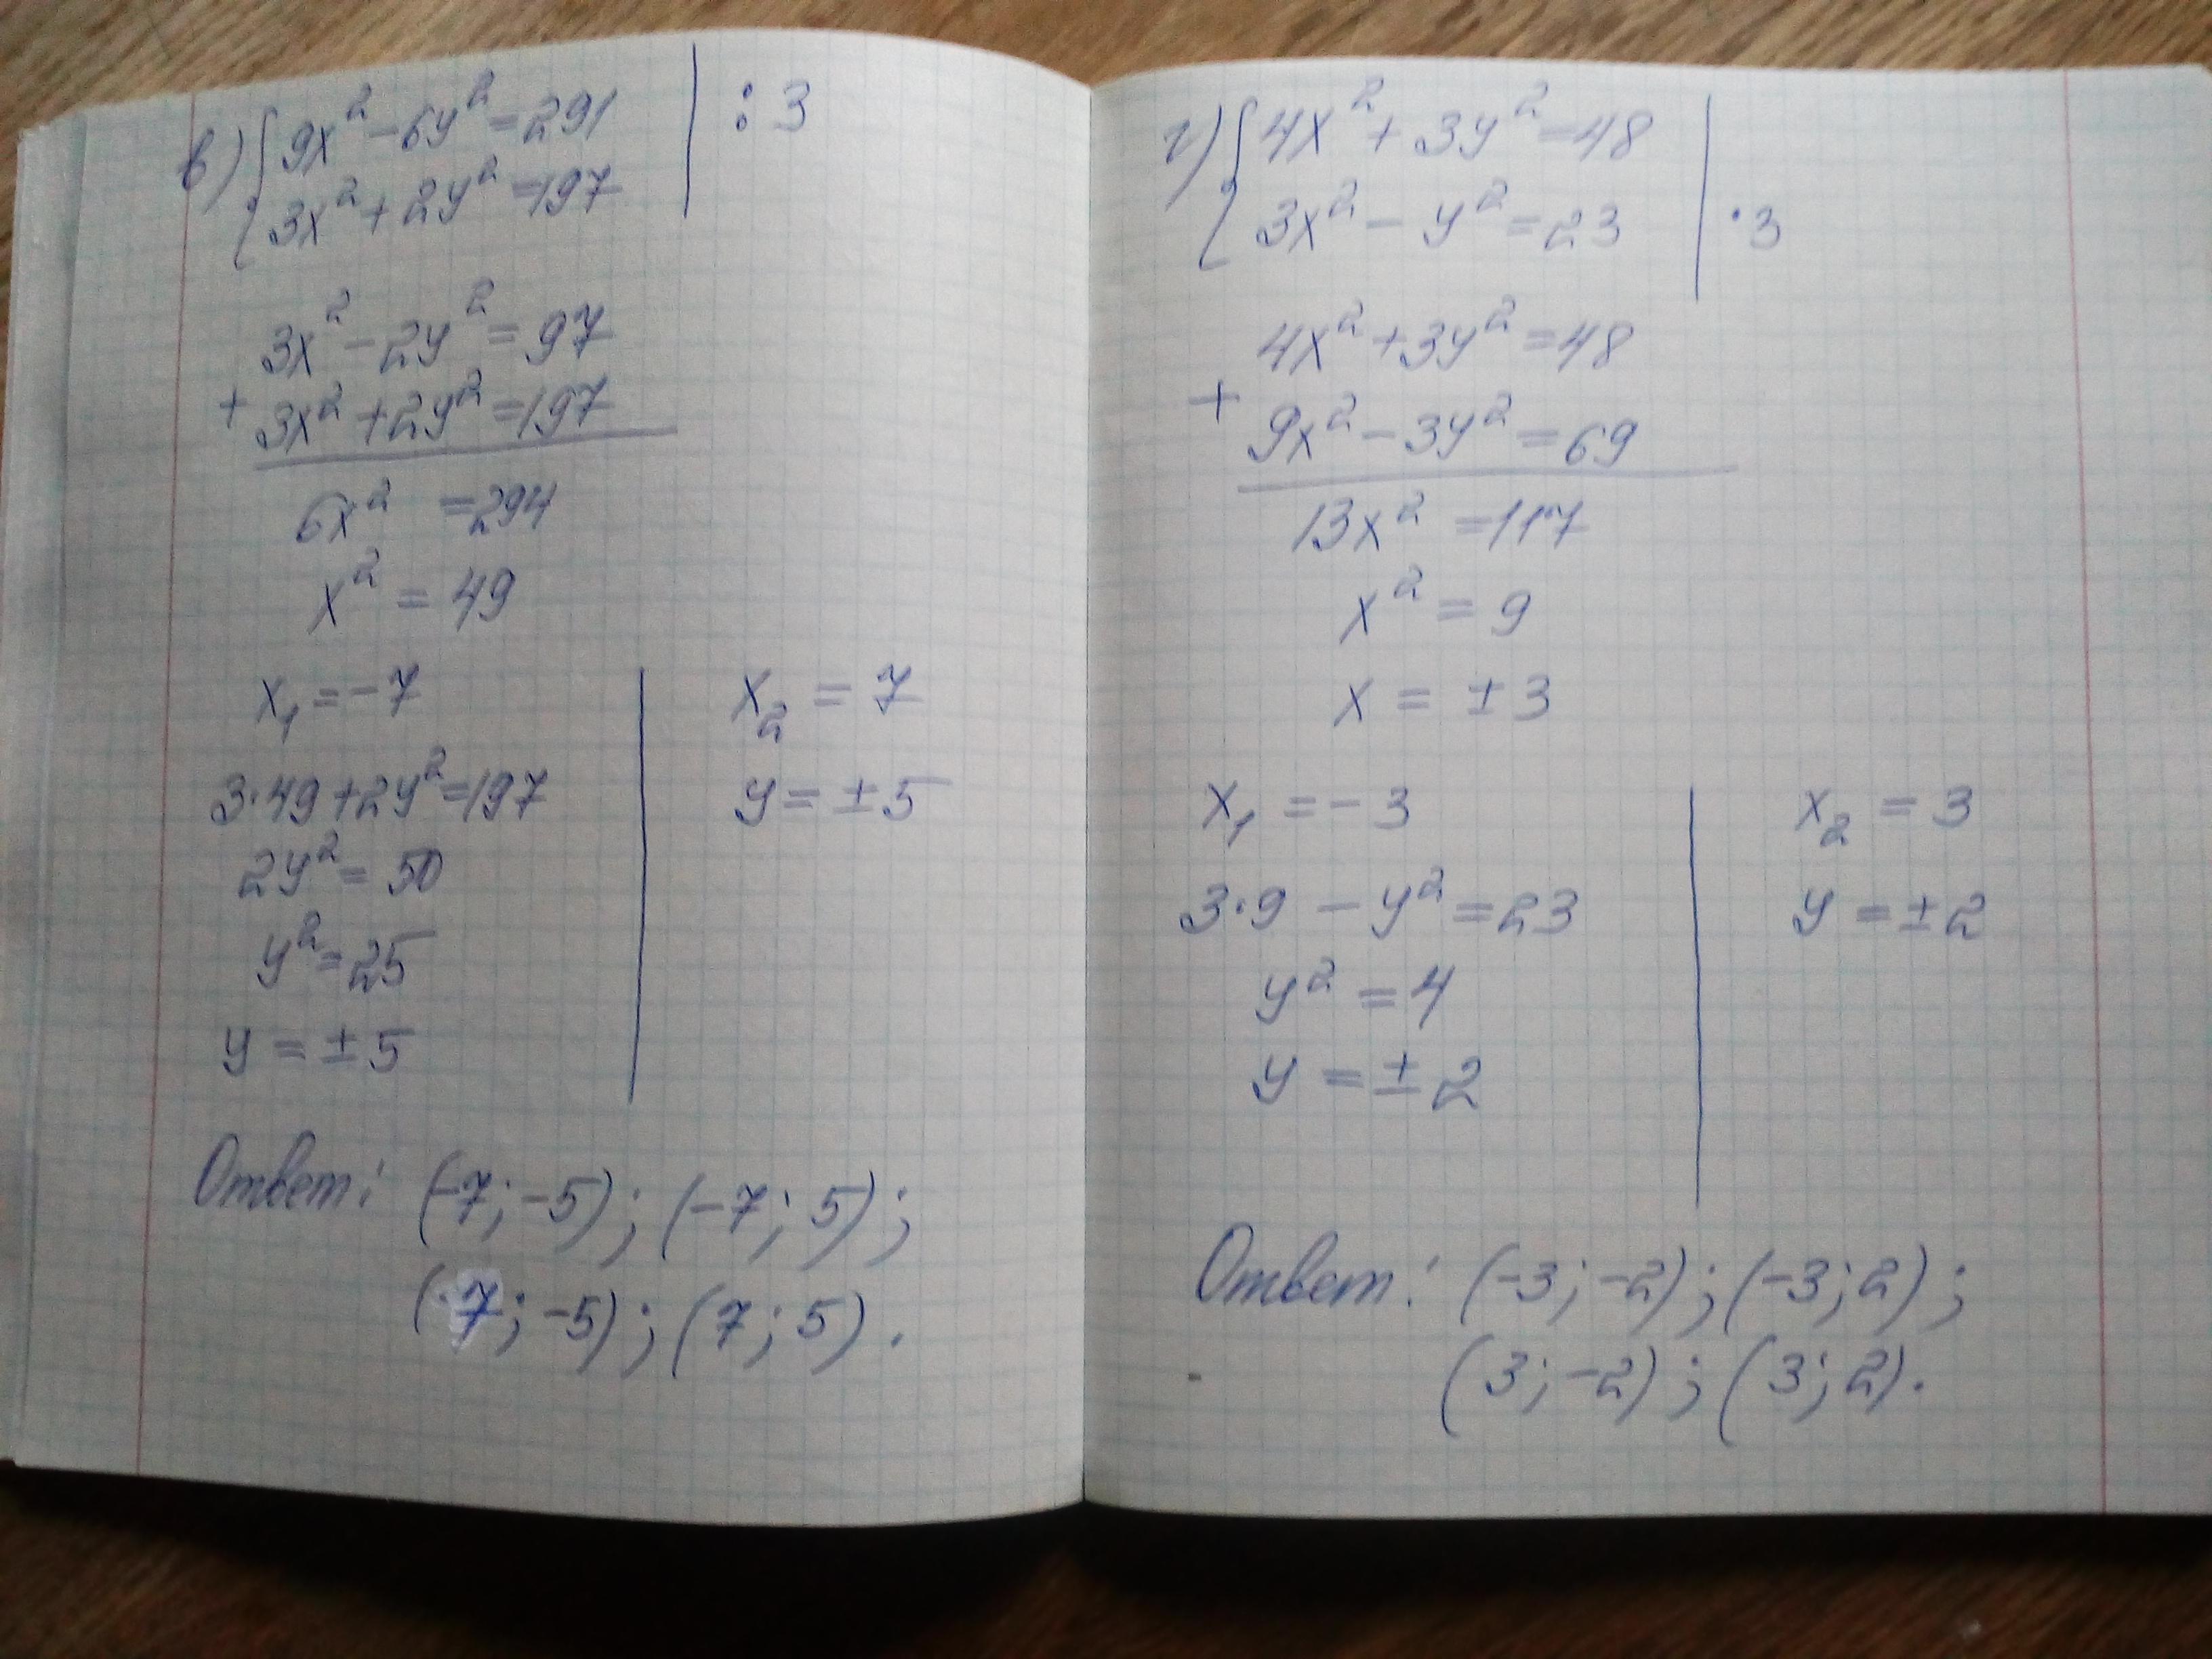 в) { 9x² - 6y² = 291 | : 3
3x² + 2y² = 197
3x² - 2y² = 97
+ 3x² + 2y² = 197
6x² = 294
x² = 49
x₁ = -7 | x₂ = 7
3·49 + 2y² = 197 | y = ±5
2y² = 50
y² = 25
y = ±5
Ответ: (-7; -5); (-7; 5);
(7; -5); (7; 5).
г) { 4x² + 3y² = 48
3x² - y² = 23 | ·3
4x² + 3y² = 48
+ 9x² - 3y² = 69
13x² = 117
x² = 9
x = ±3
x₁ = -3 | x₂ = 3
3·9 - y² = 23 | y = ±2
y² = 4
y = ±2
Ответ: (-3; -2); (-3; 2);
(3; -2); (3; 2).